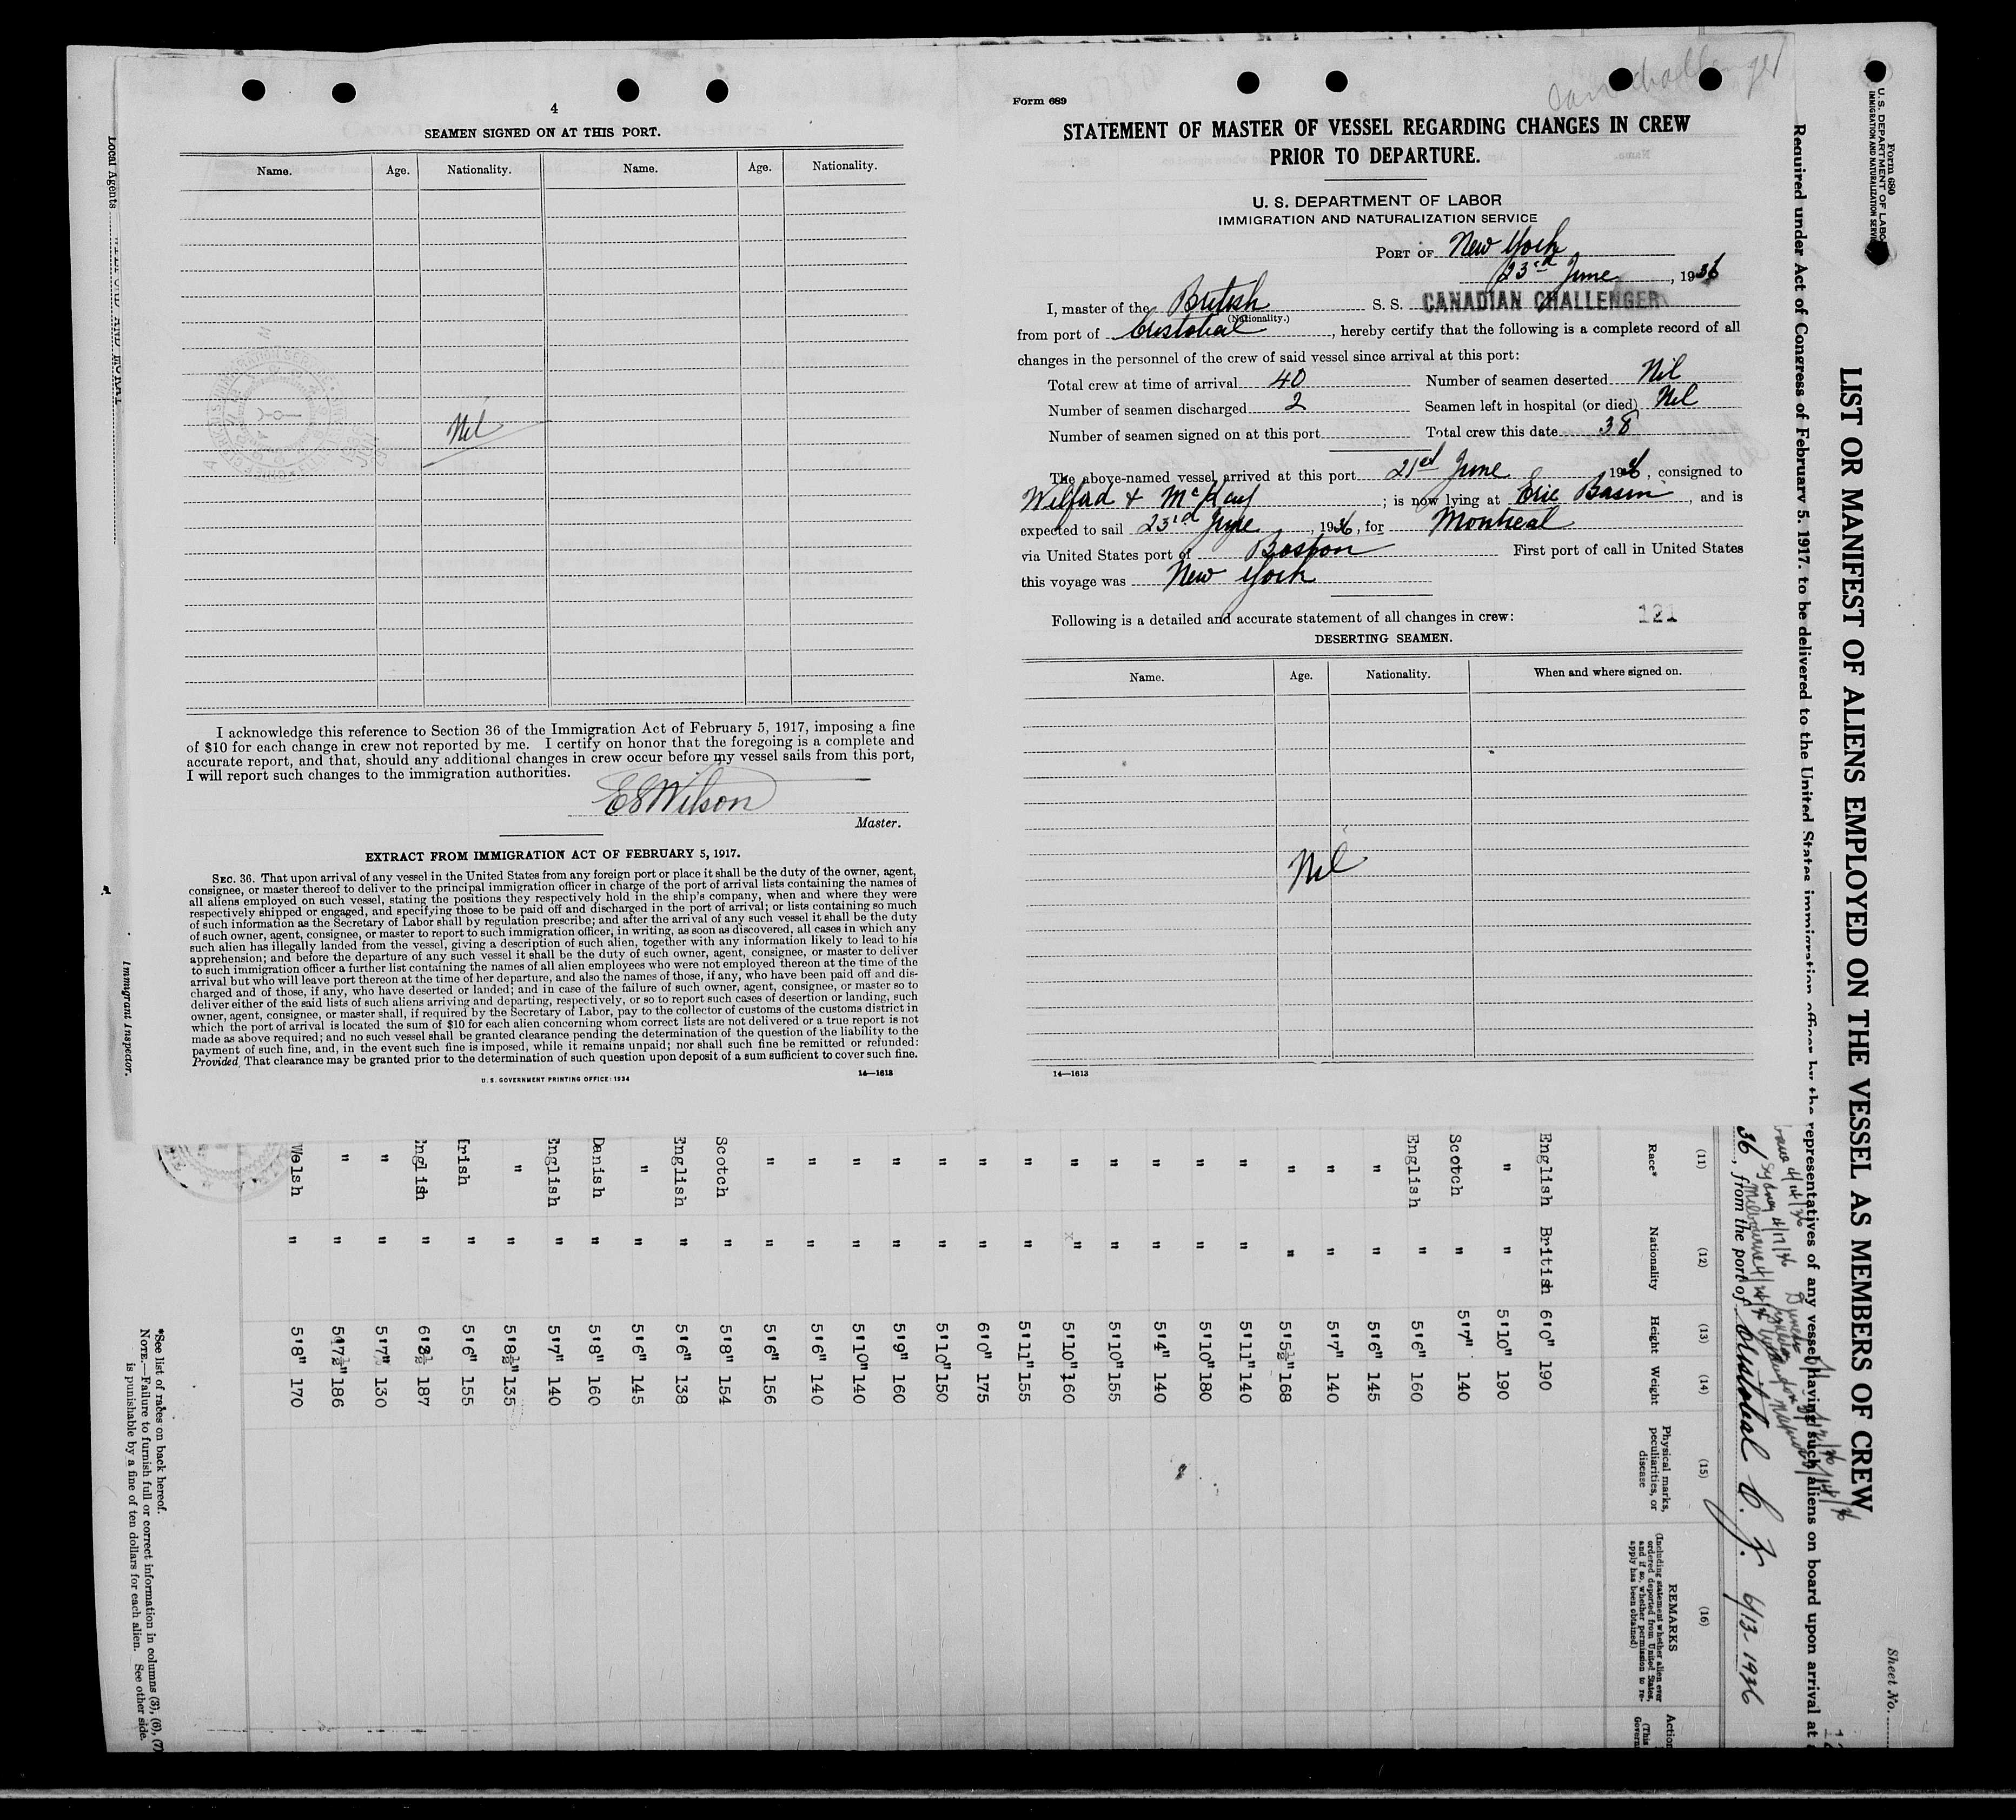 4
SEAMEN SIGNED ON AT THIS PORT.
Name. Age. Nationality. Name. Age. Nationality.
Nil
I acknowledge this reference to Section 36 of the Immigration Act of February 5, 1917, imposing a fine
of $10 for each change in crew not reported by me. I certify on honor that the foregoing is a complete and
accurate report, and that, should any additional changes in crew occur before my vessel sails from this port,
I will report such changes to the immigration authorities.
E S Wilson
Master.
EXTRACT FROM IMMIGRATION ACT OF FEBRUARY 5, 1917.
SEC. 36. That upon arrival of any vessel in the United States from any foreign port or place it shall be the duty of the owner, agent,
consignee, or master thereof to deliver to the principal immigration officer in charge of the port of arrival lists containing the names of
all aliens employed on such vessel, stating the positions they respectively hold in the ship's company, when and where they were
respectively shipped or engaged, and specifying those to be paid off and discharged in the port of arrival; or lists containing so much
of such information as the Secretary of Labor shall by regulation prescribe; and after the arrival of any such vessel it shall be the duty
of such owner, agent, consignee, or master to report to such immigration officer, in writing, as soon as discovered, all cases in which any
such alien has illegally landed from the vessel, giving a description of such alien, together with any information likely to lead to his
apprehension; and before the departure of any such vessel it shall be the duty of such owner, agent, consignee, or master to deliver
to such immigration officer a further list containing the names of all alien employees who were not employed thereon at the time of the
arrival but who will leave port thereon at the time of her departure, and also the names of those, if any, who have been paid off and dis-
charged and of those, if any, who have deserted or landed; and in case of the failure of such owner, agent, consignee, or master so to
deliver either of the said lists of such aliens arriving and departing, respectively, or so to report such cases of desertion or landing, such
owner, agent, consignee, or master shall, if required by the Secretary of Labor, pay to the collector of customs of the customs district in
which the port of arrival is located the sum of $10 for each alien concerning whom correct lists are not delivered or a true report is not
made as above required; and no such vessel shall be granted clearance pending the determination of the question of the liability to the
payment of such fine, and, in the event such fine is imposed, while it remains unpaid; nor shall such fine be remitted or refunded:
Provided, That clearance may be granted prior to the determination of such question upon deposit of a sum sufficient to cover such fine.
U. S. GOVERNMENT PRINTING OFFICE: 1934 14—1613
Can challenger
Form 689
STATEMENT OF MASTER OF VESSEL REGARDING CHANGES IN CREW
PRIOR TO DEPARTURE.
U. S. DEPARTMENT OF LABOR
IMMIGRATION AND NATURALIZATION SERVICE
PORT OF New York
23rd June, 1936
I, master of the British S. S. CANADIAN CHALLENGER
(Nationality.)
from port of Cristobal, hereby certify that the following is a complete record of all
changes in the personnel of the crew of said vessel since arrival at this port:
Total crew at time of arrival 40 Number of seamen deserted Nil
Number of seamen discharged 2 Seamen left in hospital (or died) Nil
Number of seamen signed on at this port Total crew this date 38
The above-named vessel arrived at this port 21st June 1936, consigned to
Wilfad & McKay; is now lying at Erie Basin, and is
expected to sail 23rd June, 1936, for Montreal
via United States port of Boston First port of call in United States
this voyage was New York
Following is a detailed and accurate statement of all changes in crew: 121
DESERTING SEAMEN.
Name. Age. Nationality. When and where signed on.
Nil
14—1613
Form 680
U. S. DEPARTMENT OF LABOR
IMMIGRATION AND NATURALIZATION SERVICE
Sheet No.
LIST OR MANIFEST OF ALIENS EMPLOYED ON THE VESSEL AS MEMBERS OF CREW
Required under Act of Congress of February 5, 1917, to be delivered to the United States immigration officer by the representatives of any vessel having such aliens on board upon arrival at
Sydney 4/17/36
Melbourne
36, from the port of Cristobal C. Z. 6/13 1936
(11) (12) (13) (14) (15) (16)
Race* Nationality Height Weight Physical marks, peculiarities, or disease REMARKS Action
(Including statement whether alien ever ordered deported from United States, and if so, whether permission to re-apply has been obtained)
English British 6'0" 190
" " 5'10" 190
Scotch " 5'7" 140
English " 5'6" 160
" " 5'6" 145
" " 5'7" 140
" " 5'5½" 168
" " 5'11" 140
" " 5'10" 180
" " 5'4" 140
" " 5'10" 155
" " 5'10" 160
" " 5'11" 155
" " 6'0" 175
" " 5'10" 150
" " 5'9" 160
" " 5'10" 140
" " 5'6" 140
" " 5'6" 156
Scotch " 5'8" 154
English " 5'6" 138
" " 5'6" 145
Danish " 5'8" 160
English " 5'7" 140
" " 5'8½" 135
Irish " 5'6" 155
English " 187
" " 5'7" 130
" " 5'7½" 186
Welsh " 5'8" 170
*See list of races on back hereof.
NOTE.—Failure to furnish full or correct information in columns (3), (6), (7)
is punishable by a fine of ten dollars for each alien. See other side.
Local Agents
Immigrant Inspector.